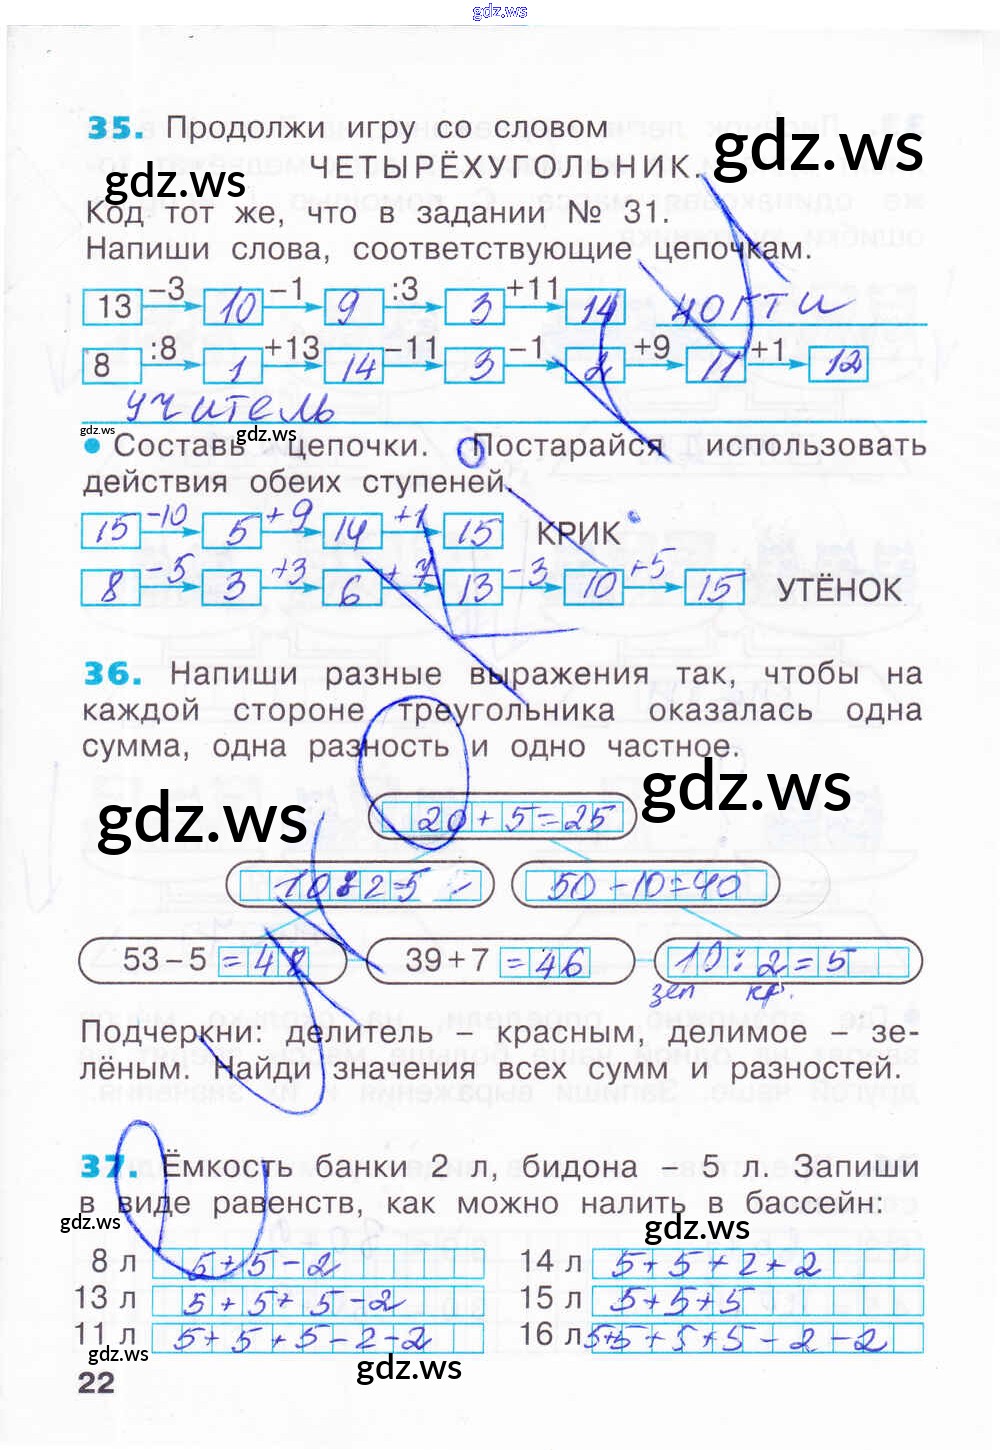 gdz.ws
35. Продолжи игру со словом
gdz.ws
ЧЕТЫРЁХУГОЛЬНИК.
gdz.ws
Код тот же, что в задании № 31.
Напиши слова, соответствующие цепочкам.
13 –3 10 –1 9 :3 3 +11 14 когти
8 :8 1 +13 14 –11 3 –1 2 +9 11 +1 12
учитель
gdz.ws gdz.ws
• Составь цепочки. Постарайся использовать
действия обеих ступеней.
15 -10 5 +9 14 +1 15 КРИК
8 -5 3 +3 6 +7 13 -3 10 +5 15 УТЁНОК
36. Напиши разные выражения так, чтобы на
каждой стороне треугольника оказалась одна
сумма, одна разность и одно частное.
gdz.ws
gdz.ws
20+5=25
10:2=5 50-10=40
53–5 =48 39+7 =46 10:2=5
зел кр.
Подчеркни: делитель – красным, делимое – зе-
лёным. Найди значения всех сумм и разностей.
37. Ёмкость банки 2 л, бидона – 5 л. Запиши
в виде равенств, как можно налить в бассейн:
gdz.ws gdz.ws
8 л 5+5-2 14 л 5+5+2+2
13 л 5+5+5-2 15 л 5+5+5
11 л 5+5+5-2-2 16 л 5+5+5+5-2-2
gdz.ws gdz.ws
22